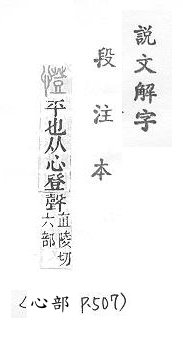 説文解字
段注本
憕
平也从心登聲直陵切
六部
(心部 P.507)